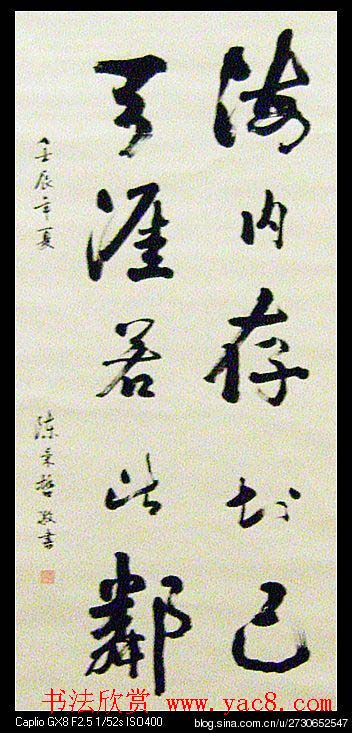 海内存知己
天涯若比鄰
壬辰年夏
陳哲敬書
书法欣赏 www.yac8.com
Caplio GX8 F2.5 1/52s ISO400
blog.sina.com.cn/u/2730652547